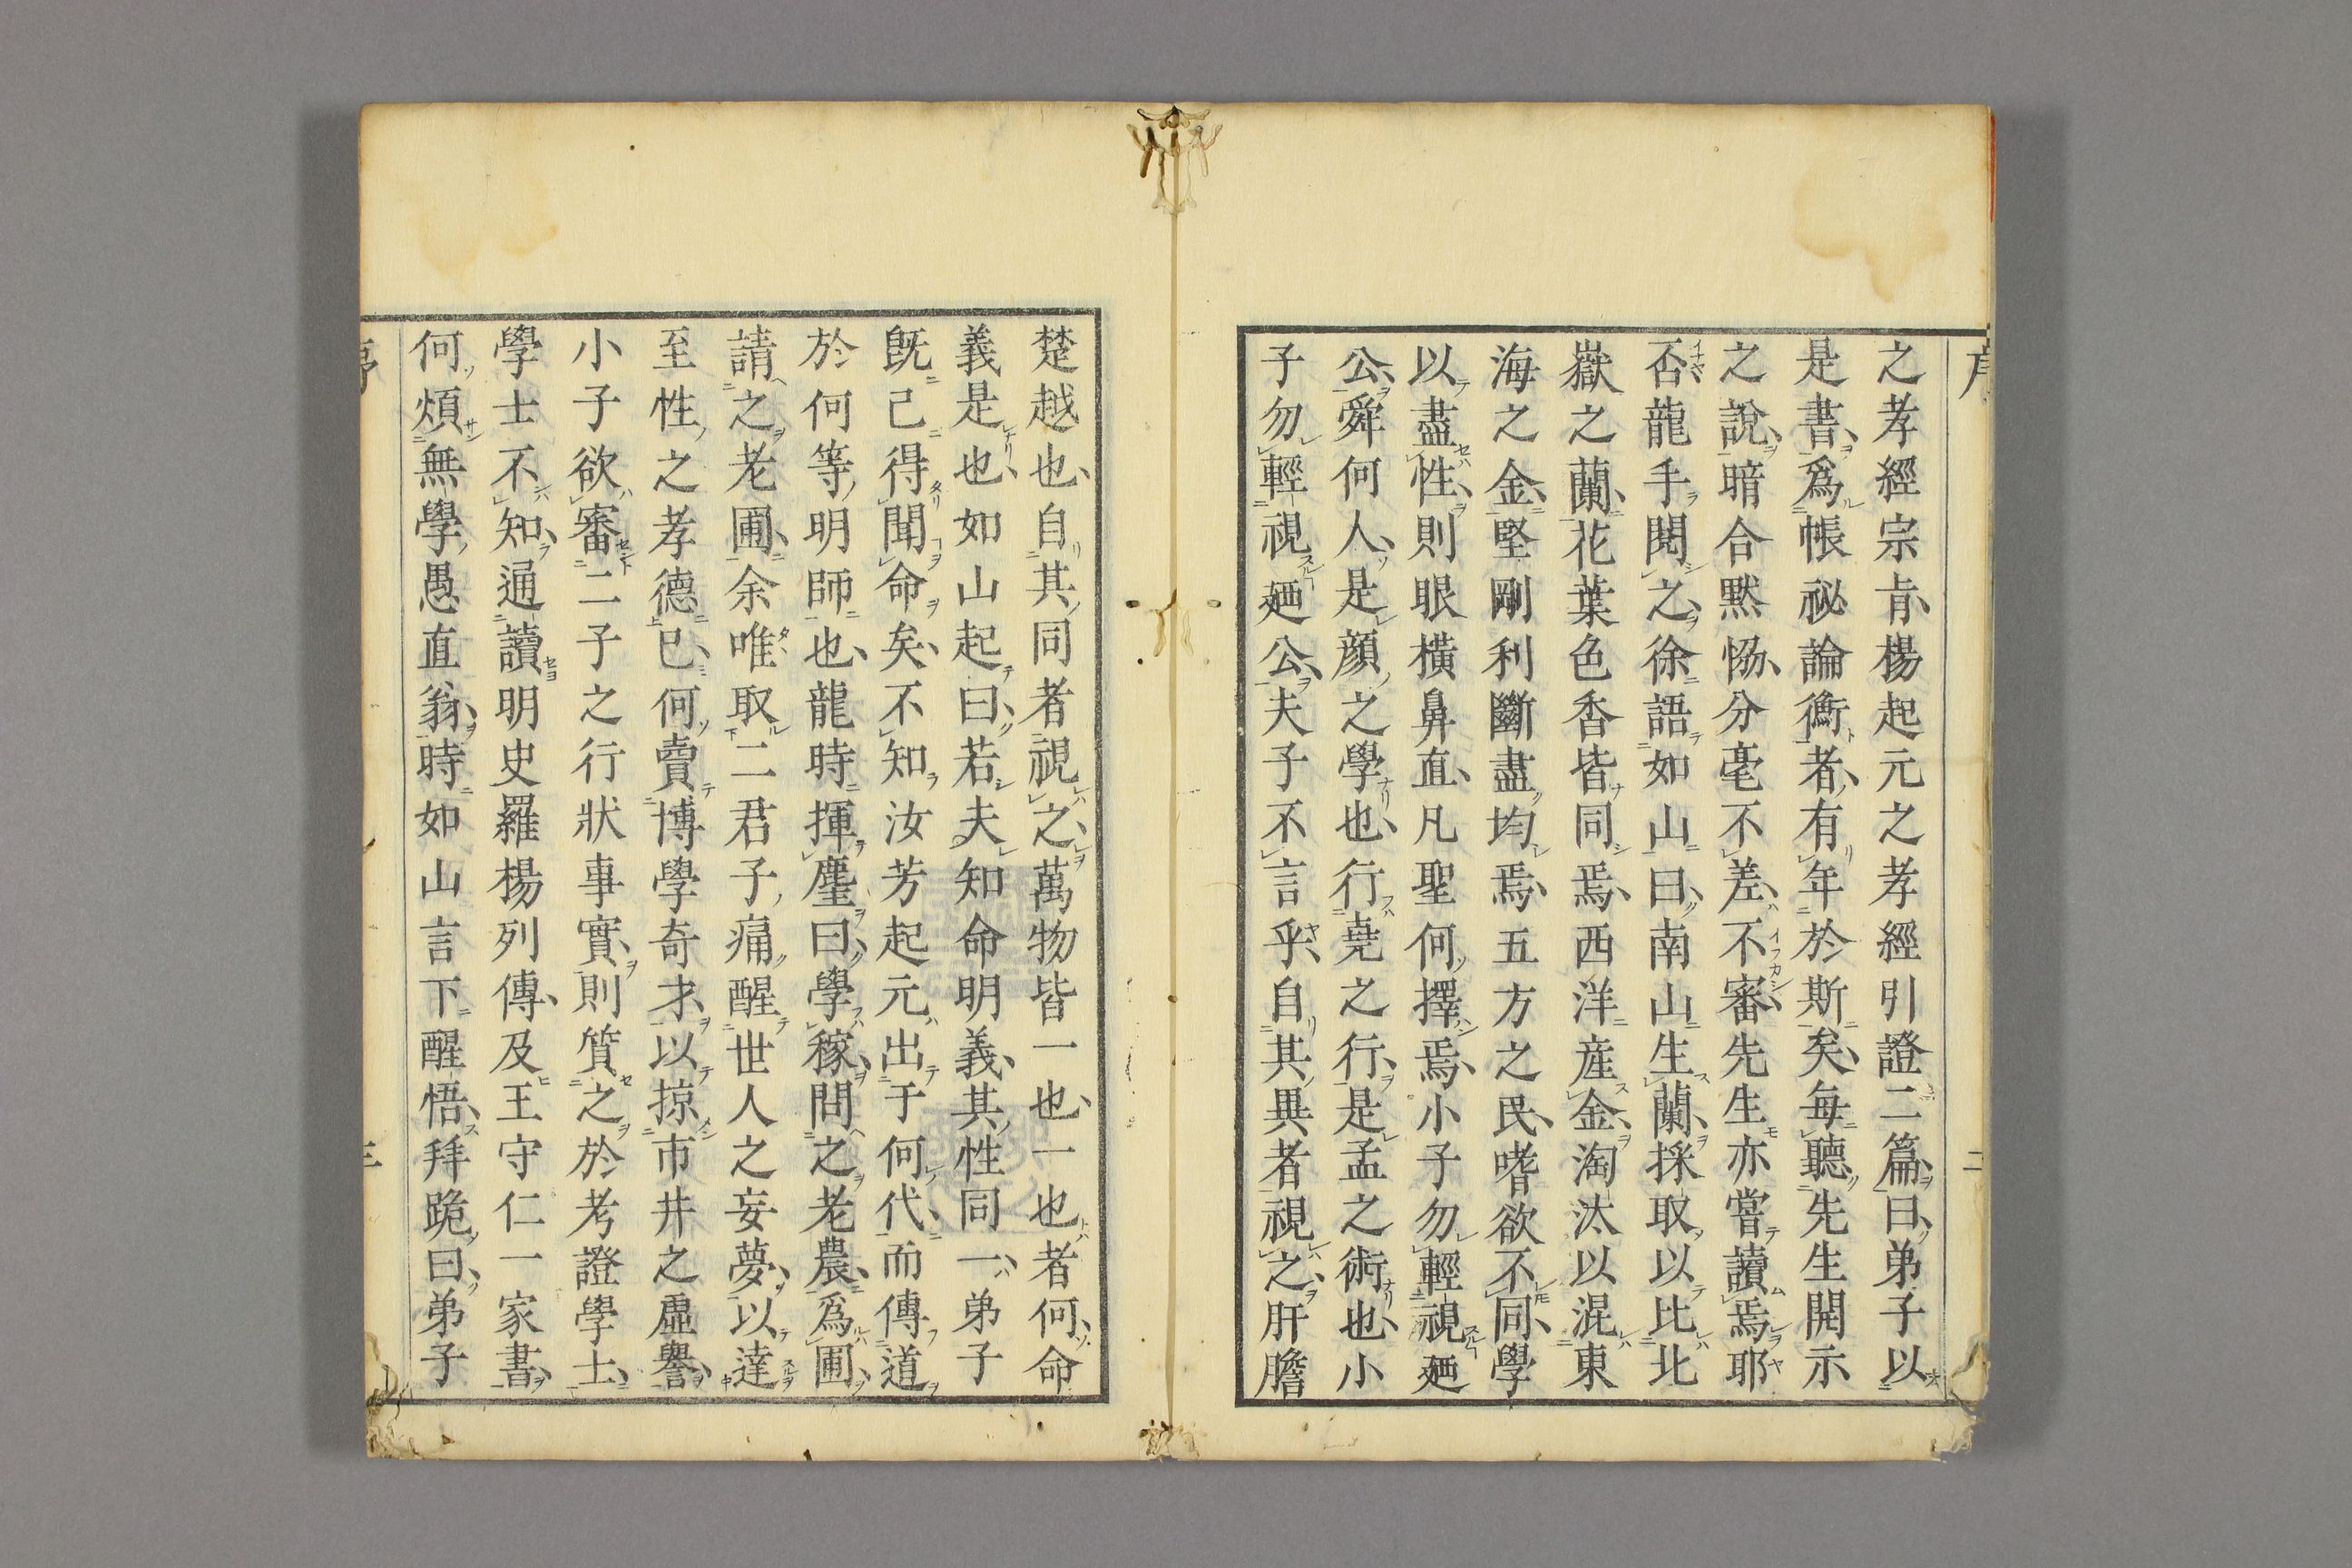 序
二
之孝經宗旨楊起元之孝經引證二篇曰弟子以
是書爲帳祕論衡者有年於斯矣每聽先生開示
之說暗合黙恊分毫不差不審先生亦嘗讀焉耶
否龍手閱之徐語如山曰南山生蘭採取以比北
嶽之蘭花葉色香皆同焉西洋産金淘汰以混東
海之金堅剛利斷盡均焉五方之民嗜欲不同學
以盡性則眼橫鼻直凡聖何擇焉小子勿輕視廼
公舜何人是顔之學也行堯之行是孟之術也小
子勿輕視廼公夫子不言乎自其異者視之肝膽
楚越也自其同者視之萬物皆一也一也者何命
義是也如山起曰若夫知命明義其性同一弟子
既已得聞命矣不知汝芳起元出于何代而傳道
於何等明師也龍時揮麈曰學稼問之老農爲圃
請之老圃余唯取二君子痛醒世人之妄夢以達
至性之孝德已何賣博學奇才以掠市井之虛譽
小子欲審二子之行狀事實則質之於考證學士
學士不知通讀明史羅楊列傳及王守仁一家書
何煩無學愚直翁時如山言下醒悟拜跪曰弟子
序
三